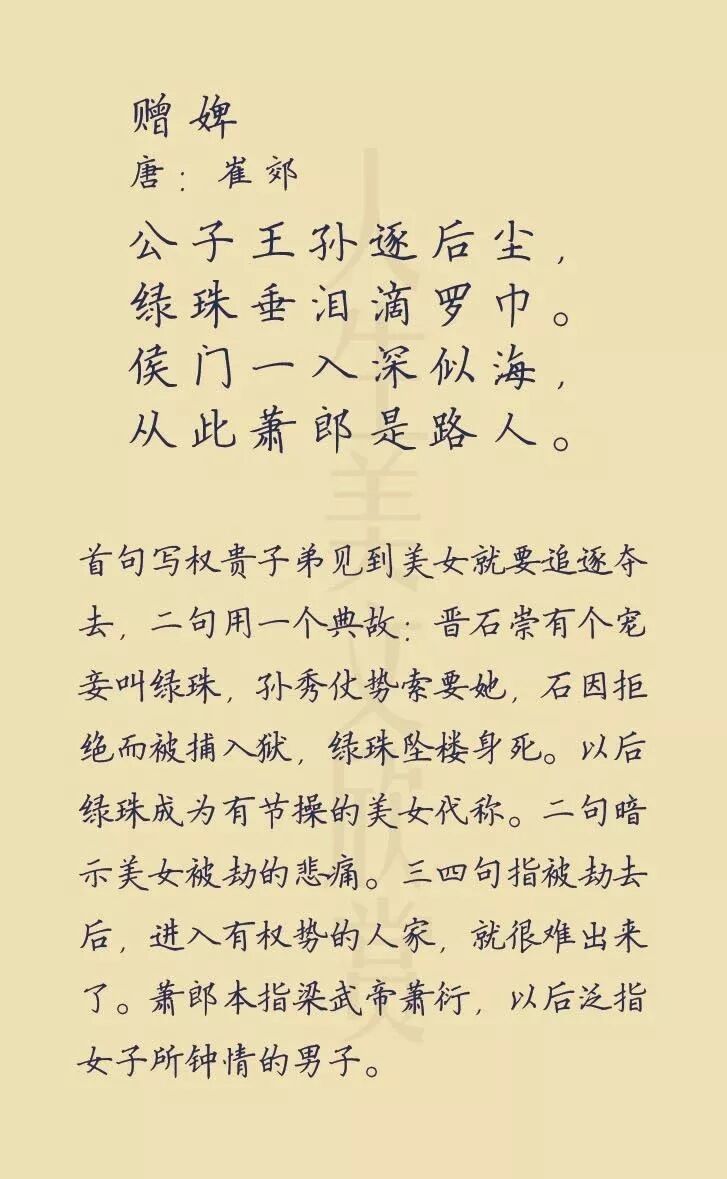 赠婢
唐：崔郊
公子王孙逐后尘，
绿珠垂泪滴罗巾。
侯门一入深似海，
从此萧郎是路人。
首句写权贵子弟见到美女就要追逐夺
去，二句用一个典故：晋石崇有个宠
妾叫绿珠，孙秀仗势索要她，石因拒
绝而被捕入狱，绿珠坠楼身死。以后
绿珠成为有节操的美女代称。二句暗
示美女被劫的悲痛。三四句指被劫去
后，进入有权势的人家，就很难出来
了。萧郎本指梁武帝萧衍，以后泛指
女子所钟情的男子。
人生美文欣赏